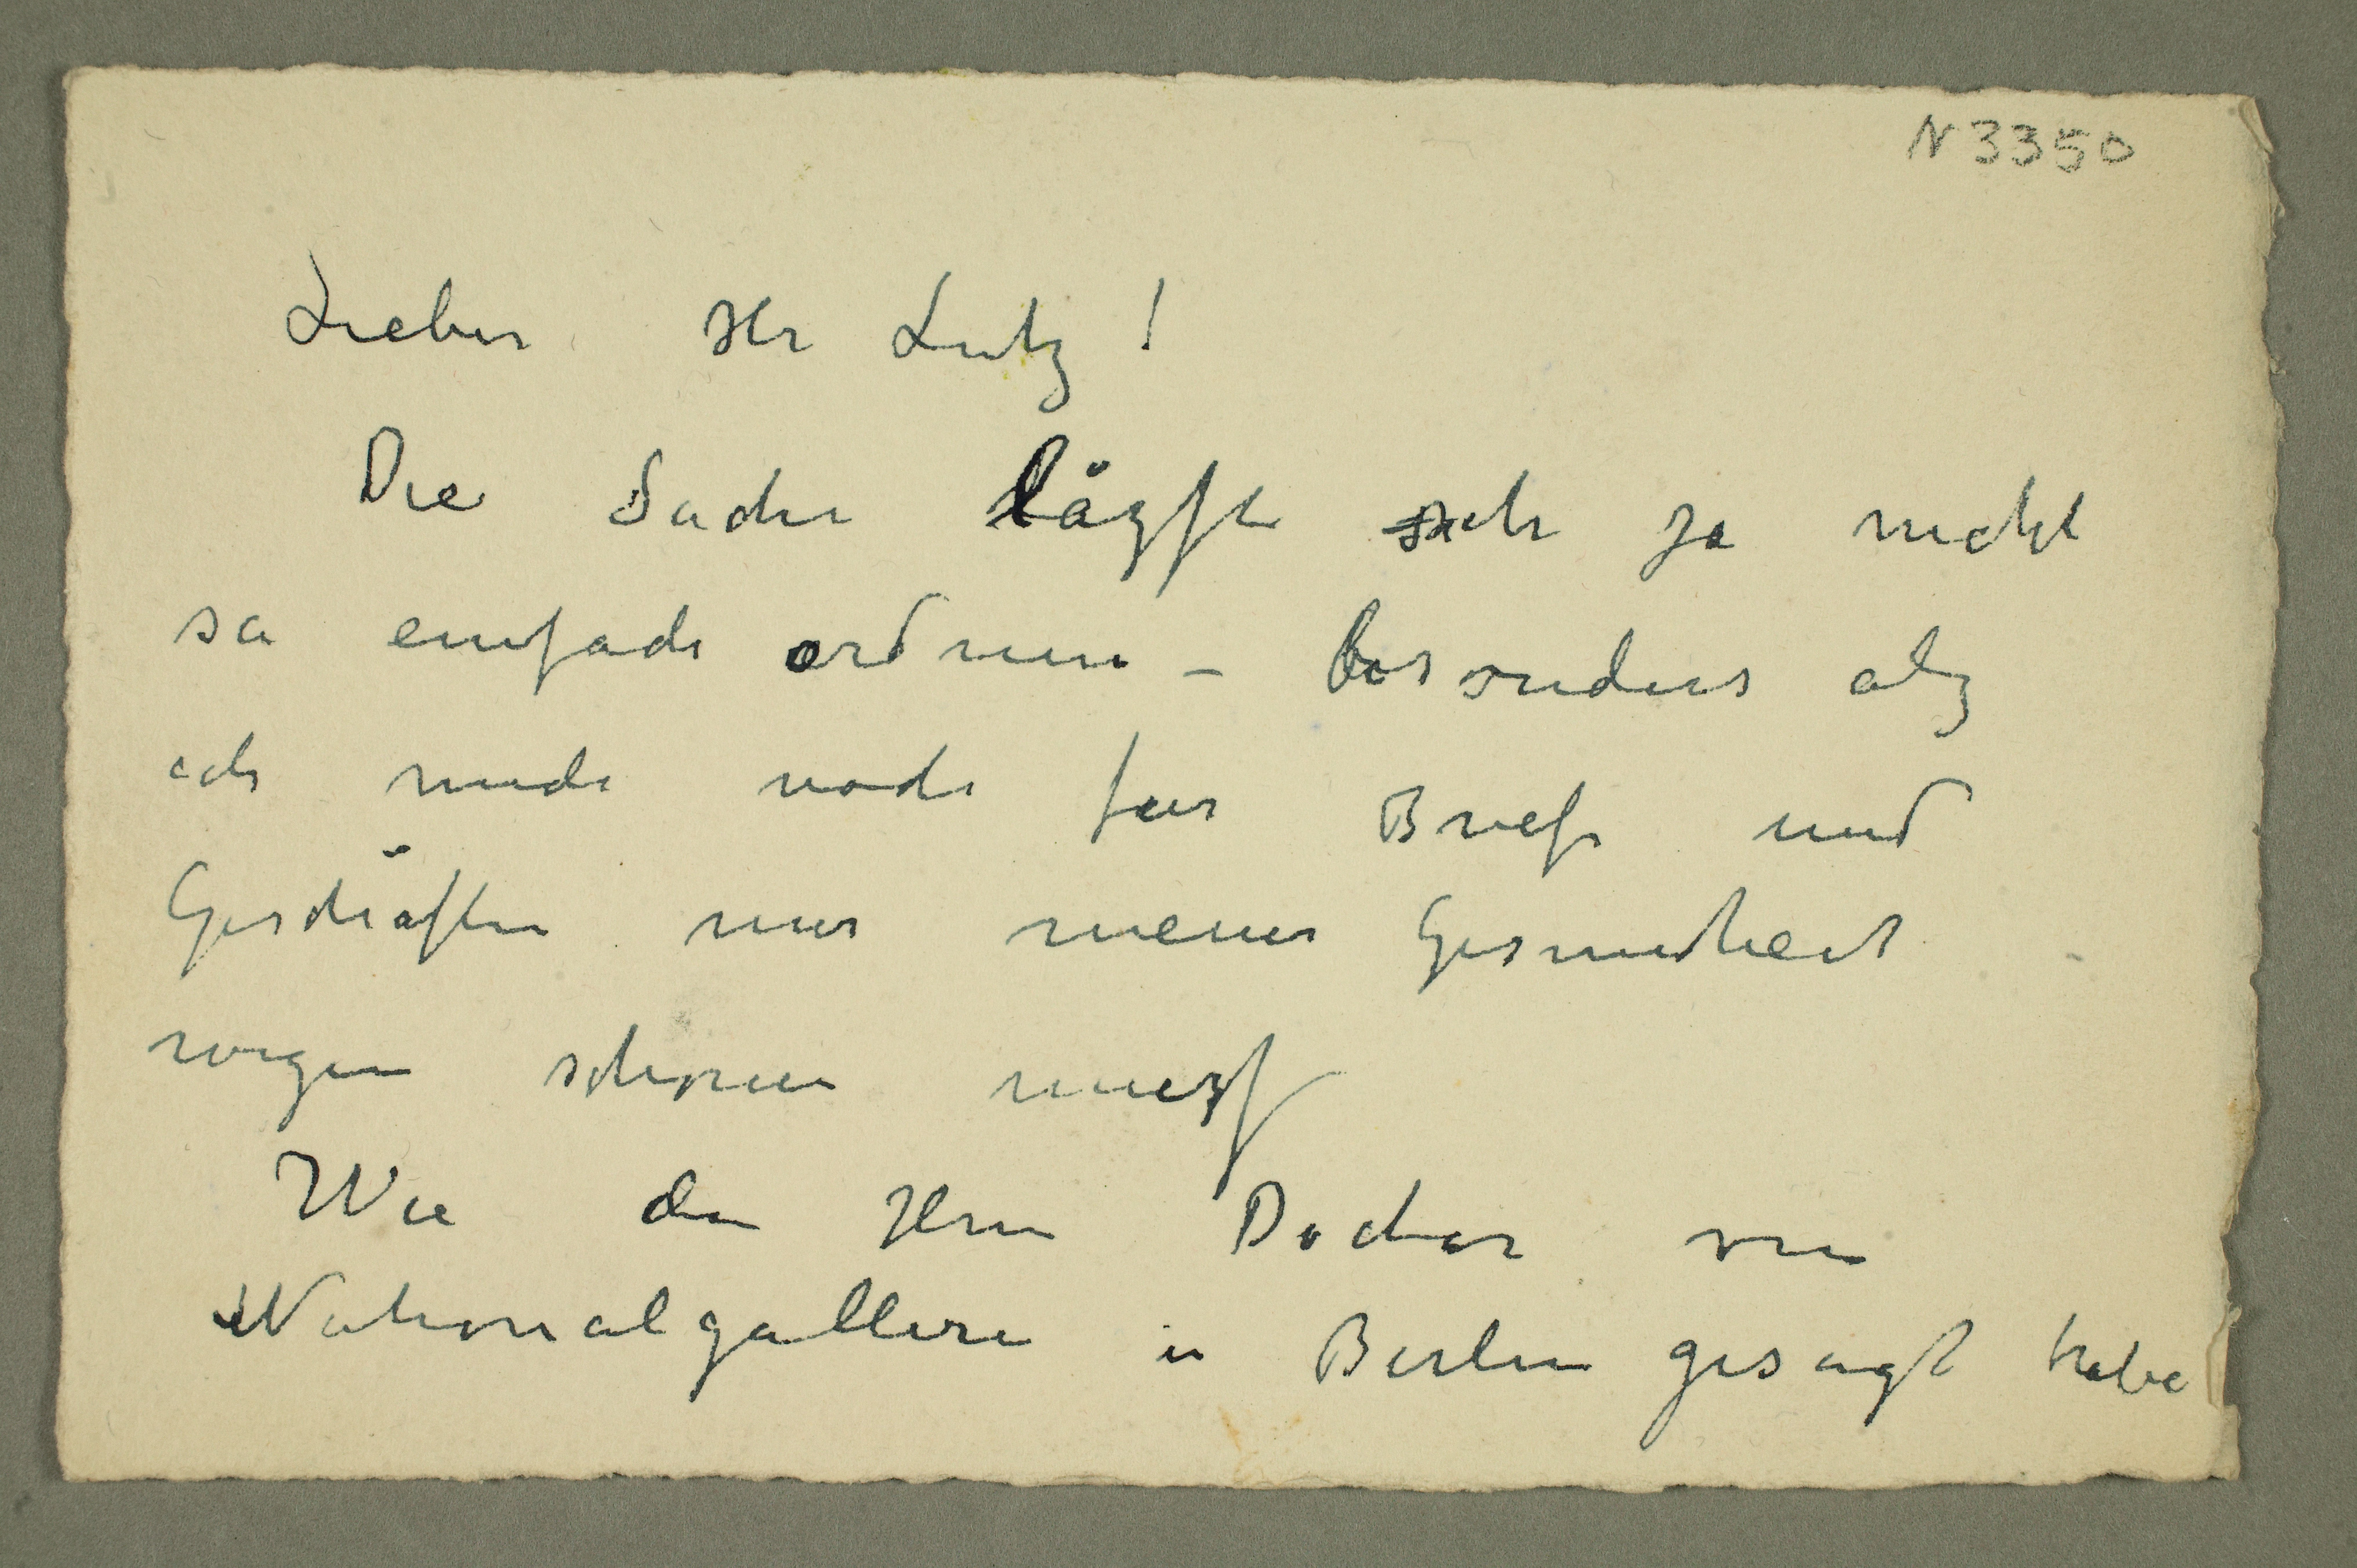 N 3350
Lieber Hr Lutz!
Die Sache läzst sich ja nicht
so einfach ordnen – besonders alz
ich mich noch fur Briefe und
Geschäften nur meiner Gesundheit
wegen schonen muezs
Wie den Herrn Docter von
Nationalgallerie in Berlin gesagt habe